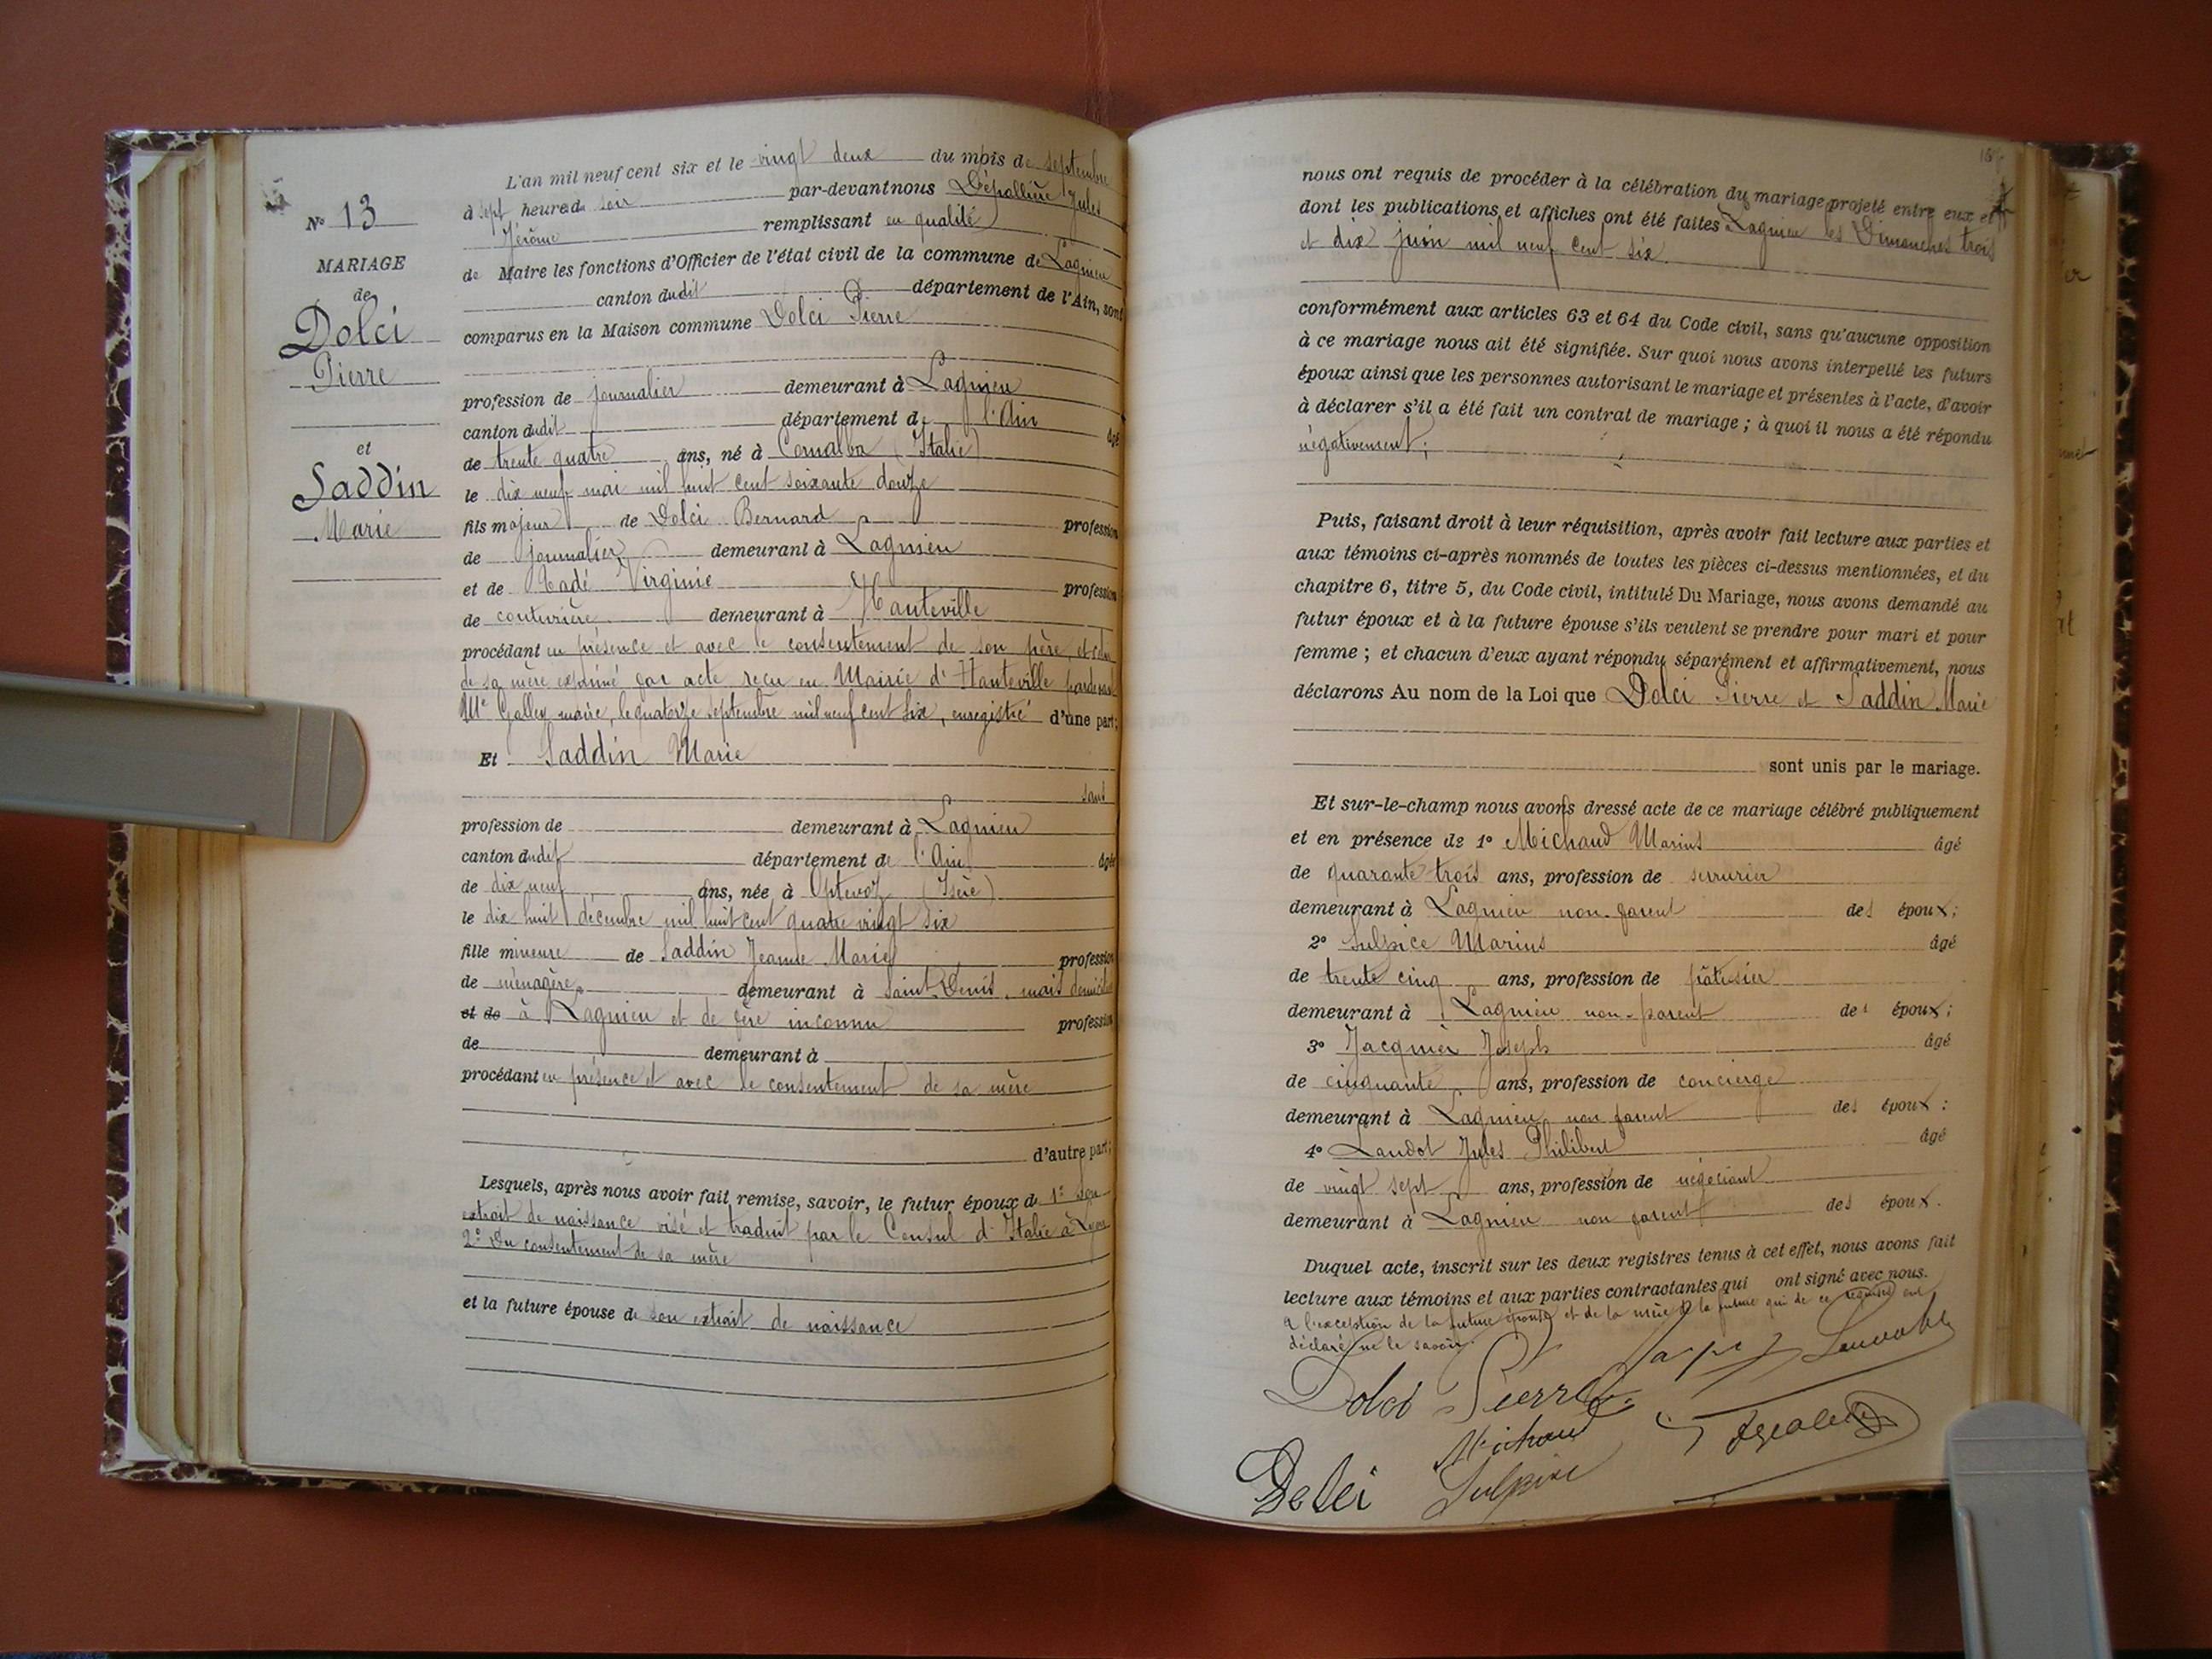 N° 13
MARIAGE
de
Dolci
Pierre
et
Saddin
Marie
L'an mil neuf cent six et le vingt deux du mois de septembre
à sept heures du soir par-devant nous Dépallière Jules
Jérôme remplissant en qualité
de Maire les fonctions d'Officier de l'état civil de la commune de Lagnieu
canton dudit département de l'Ain, sont
comparus en la Maison commune Dolci Pierre
profession de journalier demeurant à Lagnieu
canton dudit département de l'Ain âgé
de trente quatre ans, né à Cornalba (Italie)
le dix neuf mai mil huit cent soixante douze
fils majeur de Dolci Bernard profession
de journalier demeurant à Lagnieu
et de Badé Virginie profession
de couturière demeurant à Hauteville
procédant en présence et avec le consentement de son père, et celui
de sa mère exprimé par acte reçu en Mairie d'Hauteville pardevant
Me Galley maire, le quatorze septembre mil neuf cent six, enregistré d'une part;
Et Saddin Marie
sans
profession de demeurant à Lagnieu
canton dudit département de l'Ain âgée
de dix neuf ans, née à Optevoz (Isère)
le dix huit décembre mil huit cent quatre vingt six
fille mineure de Saddin Jeanne Marie profession
de ménagère demeurant à Saint Denis, mais domiciliée
et de à Lagnieu et de père inconnu profession
de demeurant à
procédant en présence et avec le consentement de sa mère
d'autre part;
Lesquels, après nous avoir fait remise, savoir, le futur époux de 1° son
extrait de naissance visé et traduit par le Consul d'Italie à Lyon
2° Du consentement de sa mère
et la future épouse de son extrait de naissance
nous ont requis de procéder à la célébration du mariage projeté entre eux et
dont les publications et affiches ont été faites à Lagnieu les Dimanches trois
et dix juin mil neuf cent six.
conformément aux articles 63 et 64 du Code civil, sans qu'aucune opposition
à ce mariage nous ait été signifiée. Sur quoi nous avons interpellé les futurs
époux ainsi que les personnes autorisant le mariage et présentes à l'acte, d'avoir
à déclarer s'il a été fait un contrat de mariage ; à quoi il nous a été répondu
négativement;
Puis, faisant droit à leur réquisition, après avoir fait lecture aux parties et
aux témoins ci-après nommés de toutes les pièces ci-dessus mentionnées, et du
chapitre 6, titre 5, du Code civil, intitulé Du Mariage, nous avons demandé au
futur époux et à la future épouse s'ils veulent se prendre pour mari et pour
femme ; et chacun d'eux ayant répondu séparément et affirmativement, nous
déclarons Au nom de la Loi que Dolci Pierre et Saddin Marie
sont unis par le mariage.
Et sur-le-champ nous avons dressé acte de ce mariage célébré publiquement
et en présence de 1° Michaud Marius âgé
de quarante trois ans, profession de serrurier
demeurant à Lagnieu non-parent des époux;
2° Sulpice Marius âgé
de trente cinq ans, profession de pâtissier
demeurant à Lagnieu non-parent des époux;
3° Jacquier Joseph âgé
de cinquante ans, profession de concierge
demeurant à Lagnieu non parent des époux;
4° Landot Jules Philibert âgé
de vingt sept ans, profession de négociant
demeurant à Lagnieu non parent des époux.
Duquel acte, inscrit sur les deux registres tenus à cet effet, nous avons fait
lecture aux témoins et aux parties contractantes qui ont signé avec nous.
à l'exception de la future épouse et de la mère de la future qui de ce requises ont
déclaré ne le savoir.
Dolci Pierre
Michaud
Dolci Sulpice